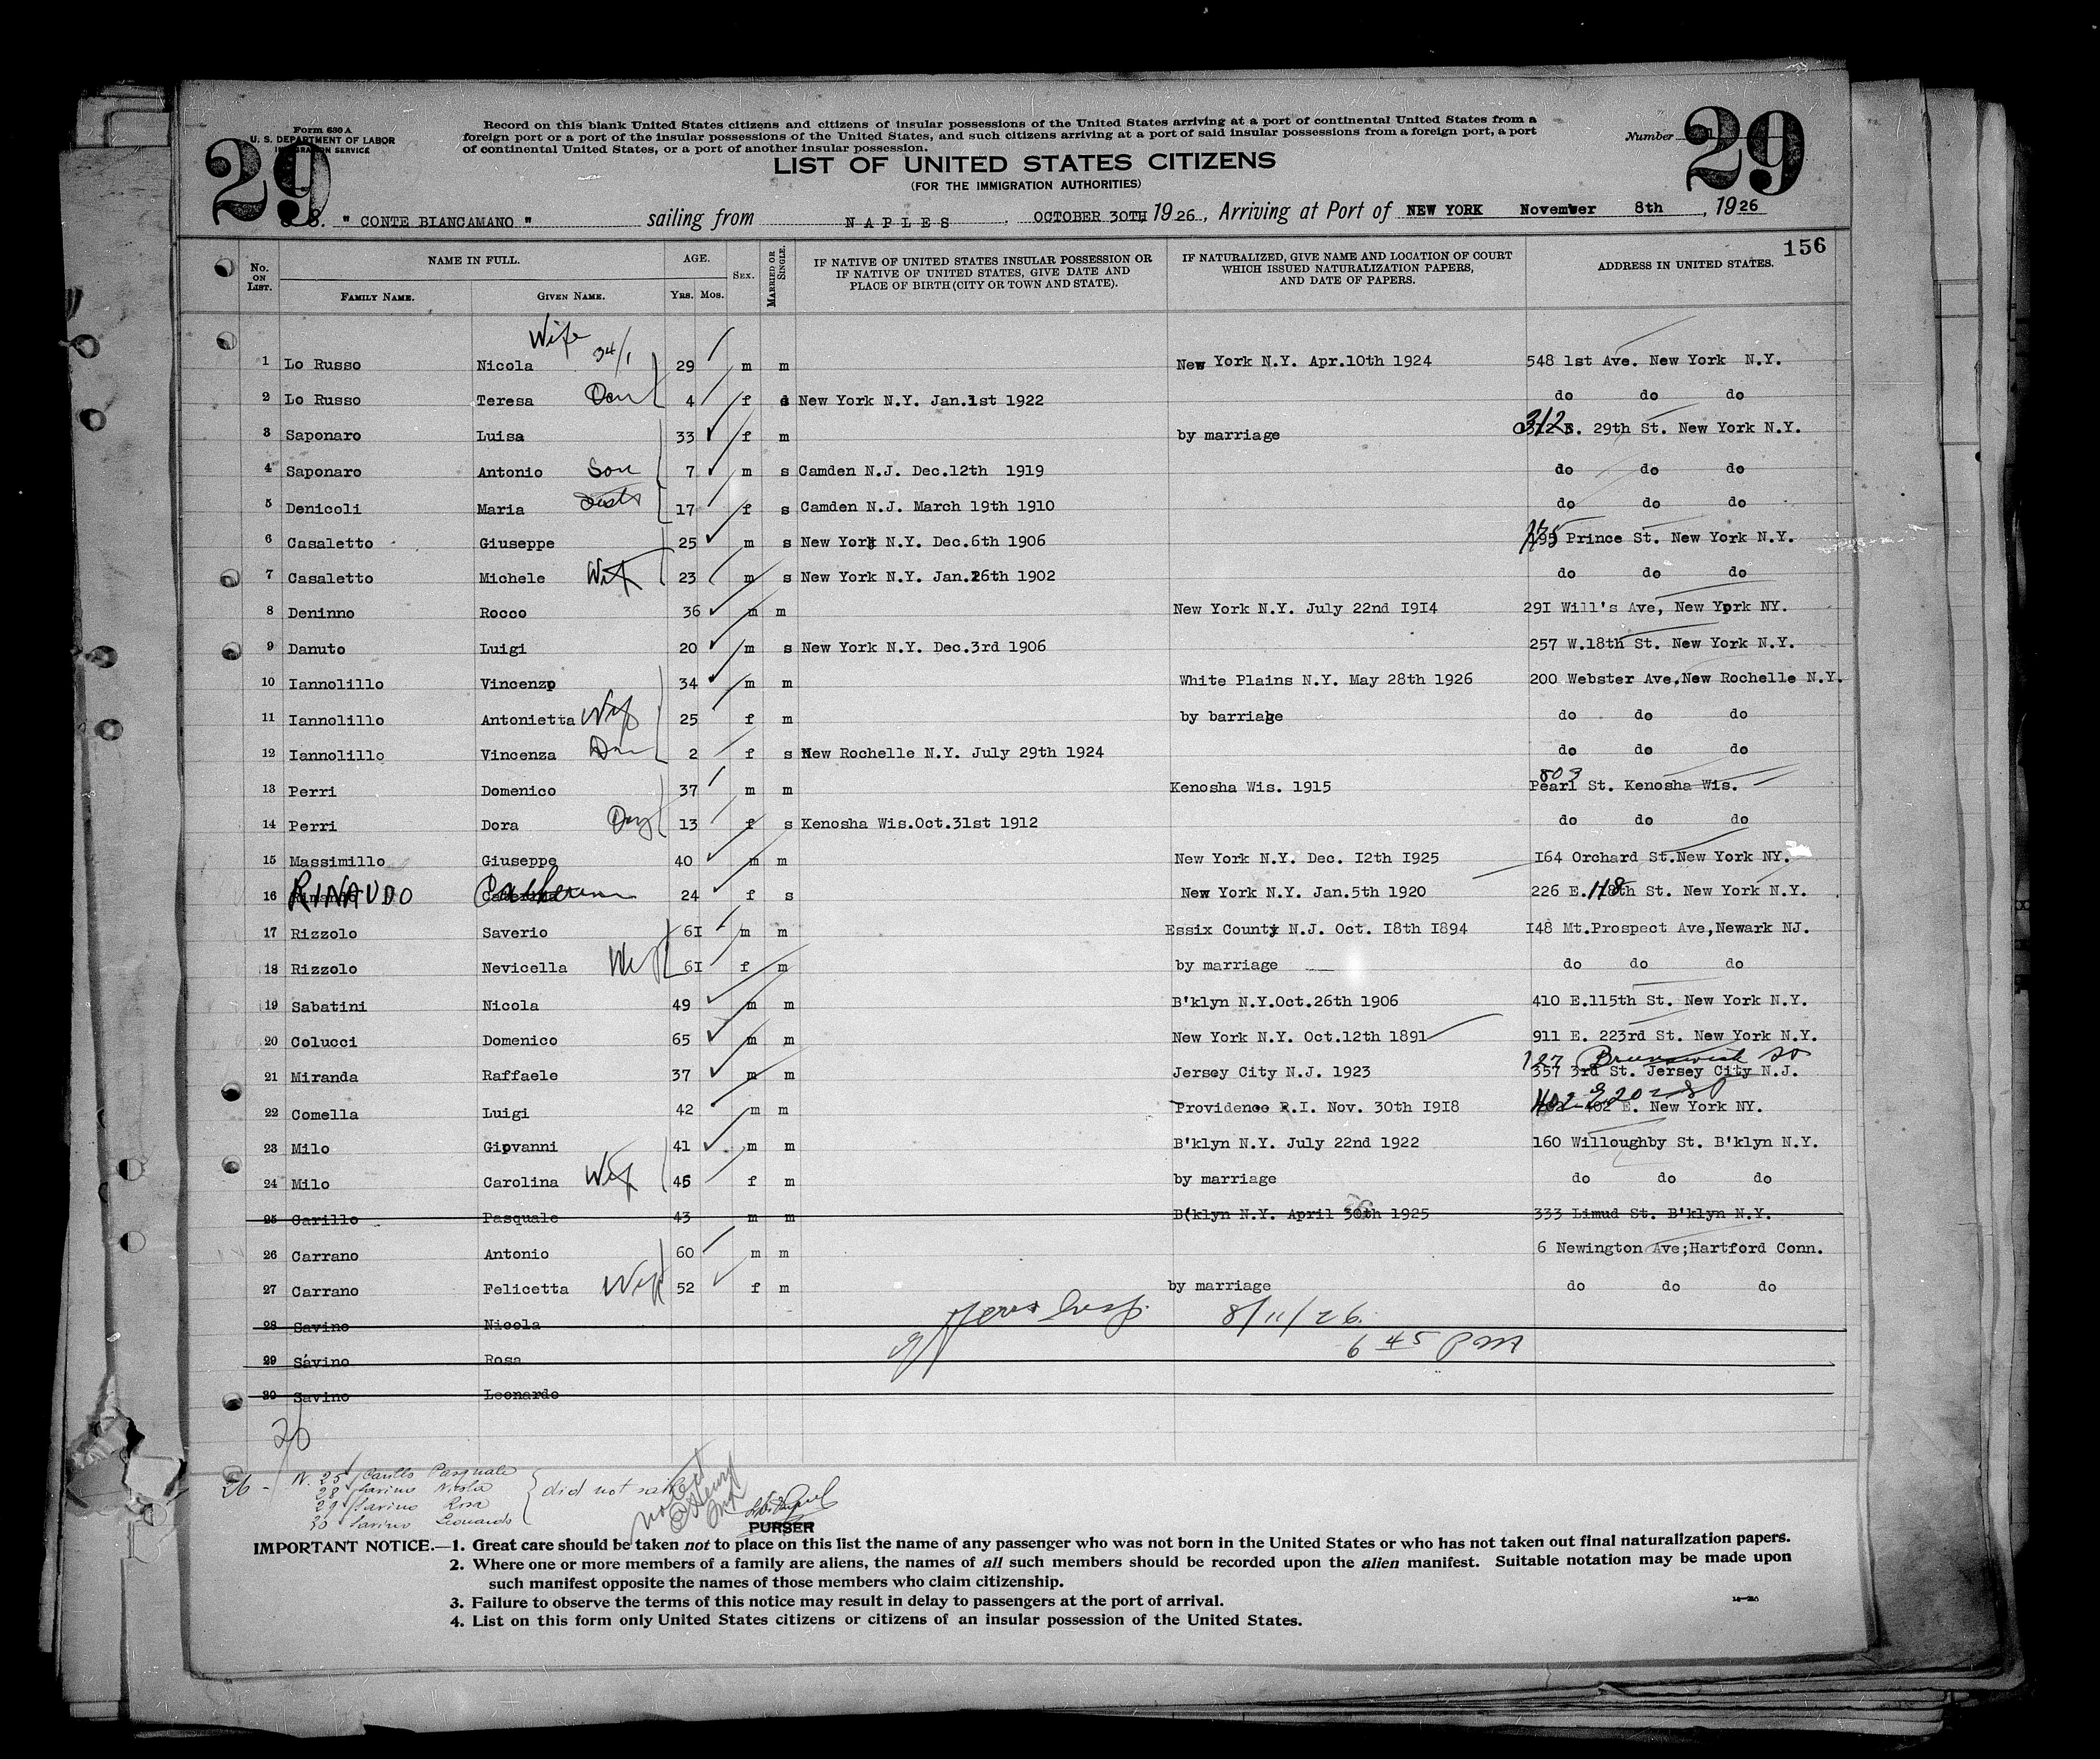 Form 630 A
U. S. DEPARTMENT OF LABOR
IMMIGRATION SERVICE
29
Record on this blank United States citizens and citizens of insular possessions of the United States arriving at a port of continental United States from a
foreign port or a port of the insular possessions of the United States, and such citizens arriving at a port of said insular possessions from a foreign port, a port
of continental United States, or a port of another insular possession.
Number
29
LIST OF UNITED STATES CITIZENS
(FOR THE IMMIGRATION AUTHORITIES)
S. S. " CONTE BIANCAMANO " sailing from NAPLES, OCTOBER 30TH, 1926, Arriving at Port of NEW YORK November 8th, 1926
156
No. ON LIST. NAME IN FULL. FAMILY NAME. GIVEN NAME. AGE. YRS. MOS. SEX. MARRIED OR SINGLE. IF NATIVE OF UNITED STATES INSULAR POSSESSION OR IF NATIVE OF UNITED STATES, GIVE DATE AND PLACE OF BIRTH (CITY OR TOWN AND STATE). IF NATURALIZED, GIVE NAME AND LOCATION OF COURT WHICH ISSUED NATURALIZATION PAPERS, AND DATE OF PAPERS. ADDRESS IN UNITED STATES.
Wife 34/1
1 Lo Russo Nicola 29 m m New York N.Y. Apr.10th 1924 548 1st Ave. New York N.Y.
2 Lo Russo Teresa Dau 4 f s New York N.Y. Jan.1st 1922 do do do
3 Saponaro Luisa 33 f m by marriage 312 E. 29th St. New York N.Y.
4 Saponaro Antonio Son 7 m s Camden N.J. Dec.12th 1919 do do do
5 Denicoli Maria 17 f s Camden N.J. March 19th 1910 do do do
6 Casaletto Giuseppe 25 m s New York N.Y. Dec.6th 1906 Prince St. New York N.Y.
7 Casaletto Michele Wife 23 m s New York N.Y. Jan.26th 1902 do do do
8 Deninno Rocco 36 m m New York N.Y. July 22nd 1914 291 Will's Ave, New York NY.
9 Danuto Luigi 20 m s New York N.Y. Dec.3rd 1906 257 W.18th St. New York N.Y.
10 Iannolillo Vincenzo 34 m m White Plains N.Y. May 28th 1926 200 Webster Ave.New Rochelle N.Y.
11 Iannolillo Antonietta Wife 25 f m by barriage do do do
12 Iannolillo Vincenza Dau 2 f s New Rochelle N.Y. July 29th 1924 do do do
13 Perri Domenico 37 m m Kenosha Wis. 1915 803 Pearl St. Kenosha Wis.
14 Perri Dora Dau 13 f s Kenosha Wis.Oct.31st 1912 do do do
15 Massimillo Giuseppe 40 m m New York N.Y. Dec. 12th 1925 164 Orchard St.New York NY.
16 RINAUDO Catherine 24 f s New York N.Y. Jan.5th 1920 226 E.118th St. New York N.Y.
17 Rizzolo Saverio 61 m m Essix County N.J. Oct. 18th 1894 148 Mt.Prospect Ave,Newark NJ.
18 Rizzolo Nevicella Wife 61 f m by marriage do do do
19 Sabatini Nicola 49 m m B'klyn N.Y.Oct.26th 1906 410 E.115th St. New York N.Y.
20 Colucci Domenico 65 m m New York N.Y. Oct.12th 1891 911 E. 223rd St. New York N.Y.
127 Brunswick St
21 Miranda Raffaele 37 m m Jersey City N.J. 1923 357 3rd St. Jersey City N.J.
402 E 20 St
22 Comella Luigi 42 m m Providence R.I. Nov. 30th 1918 402 E. New York NY.
23 Milo Giovanni 41 m m B'klyn N.Y. July 22nd 1922 160 Willoughby St. B'klyn N.Y.
24 Milo Carolina Wife 45 f m by marriage do do do
25 Carillo Pasquale 43 m m B(klyn N.Y. April 30th 1925 333 Limud St. B'klyn N.Y.
26 Carrano Antonio 60 m m 6 Newington Ave;Hartford Conn.
27 Carrano Felicetta Wife 52 f m by marriage do do do
28 Savino Nicola 8/11/26.
29 Savino Rosa 6 45 PM
30 Savino Leonardo
26
26 - N. 25 Carillo Pasquale
28 Savino Nicola
29 Savino Rosa
30 Savino Leonardo
did not sail
PURSER
IMPORTANT NOTICE.—1. Great care should be taken not to place on this list the name of any passenger who was not born in the United States or who has not taken out final naturalization papers.
2. Where one or more members of a family are aliens, the names of all such members should be recorded upon the alien manifest. Suitable notation may be made upon
such manifest opposite the names of those members who claim citizenship.
3. Failure to observe the terms of this notice may result in delay to passengers at the port of arrival.
4. List on this form only United States citizens or citizens of an insular possession of the United States.